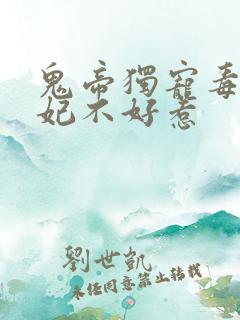 鬼帝獨寵毒
妃不好惹
劉世凱
未经同意禁止转载